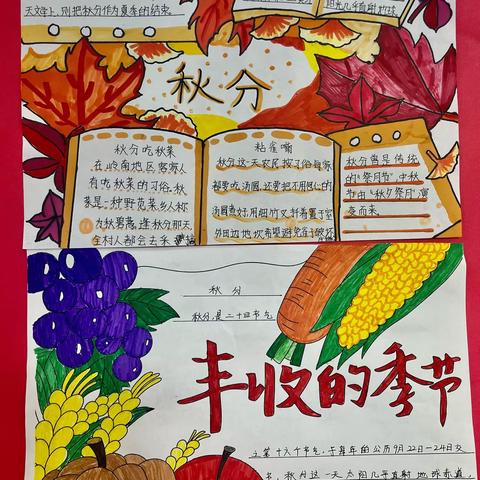 天文学上，则把秋分作为夏季的结束
阳光几乎直射地球
秋分
秋分吃秋菜
在岭南地区客家人
有吃秋菜的习俗.秋
菜是一种野苋菜乡人称
为秋碧蒿.逢秋分那天
全村人都会去采
粘雀嘴
秋分这一天农民按习俗每家
都要吃汤圆.还要把不用包心的
汤圆煮好.用细竹叉扦着置于室
外田边地坎希望避免雀子破坏
秋分曾是传统
的“祭月节”.中秋
节由“秋夕祭月”演
变而来.
秋分
秋分,是二十四节气
丰收的季节
之第十六个节气,于每年的公历9月22日—24日交
节，秋分这一天太阳几乎直射地球赤道，